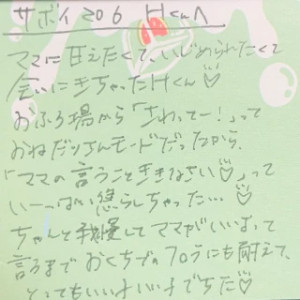 サボイ206 Hくんへ
ママに甘えたくて、いじめられたくて
会いにきちゃったHくん♡
おふろ場から「さわってー!」って
おねだりさんモードだったから、
「ママの言うことききなさい♡」って
いーっぱい焦らしちゃった…♡
ちゃんと我慢してママがいいよって
言うまで おくちでの
にも耐えて、
とってもいい子いい子でちた♡